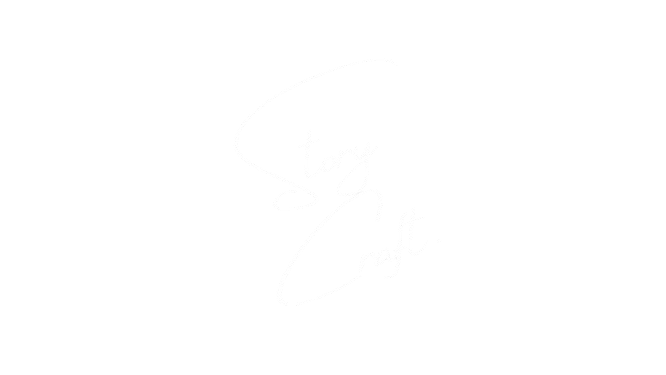 Story
Craft